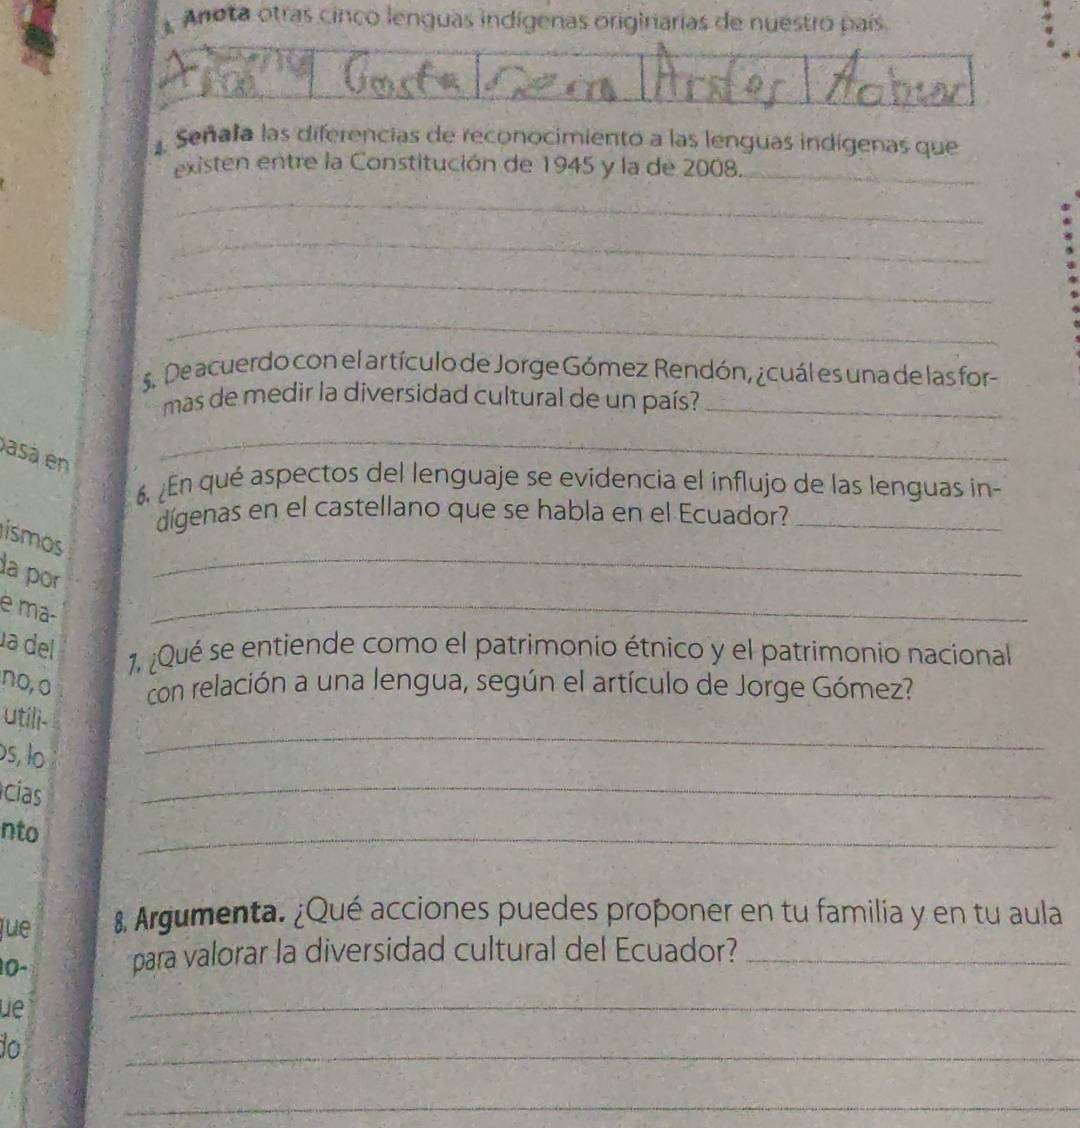 Anota otras cinco lenguas indígenas originarias de nuestro país.
Costa
4. Señala las diferencias de reconocimiento a las lenguas indígenas que
existen entre la Constitución de 1945 y la de 2008.
5. De acuerdo con el artículo de Jorge Gómez Rendón, ¿cuál es una de las for-
mas de medir la diversidad cultural de un país?
asa en
6. ¿En qué aspectos del lenguaje se evidencia el influjo de las lenguas in-
dígenas en el castellano que se habla en el Ecuador?
ismos
da por
e ma-
ua del
7. ¿Qué se entiende como el patrimonio étnico y el patrimonio nacional
no, o
con relación a una lengua, según el artículo de Jorge Gómez?
utili-
os, lo
cias
nto
que
8. Argumenta. ¿Qué acciones puedes proponer en tu familia y en tu aula
para valorar la diversidad cultural del Ecuador?
no-
ue
do